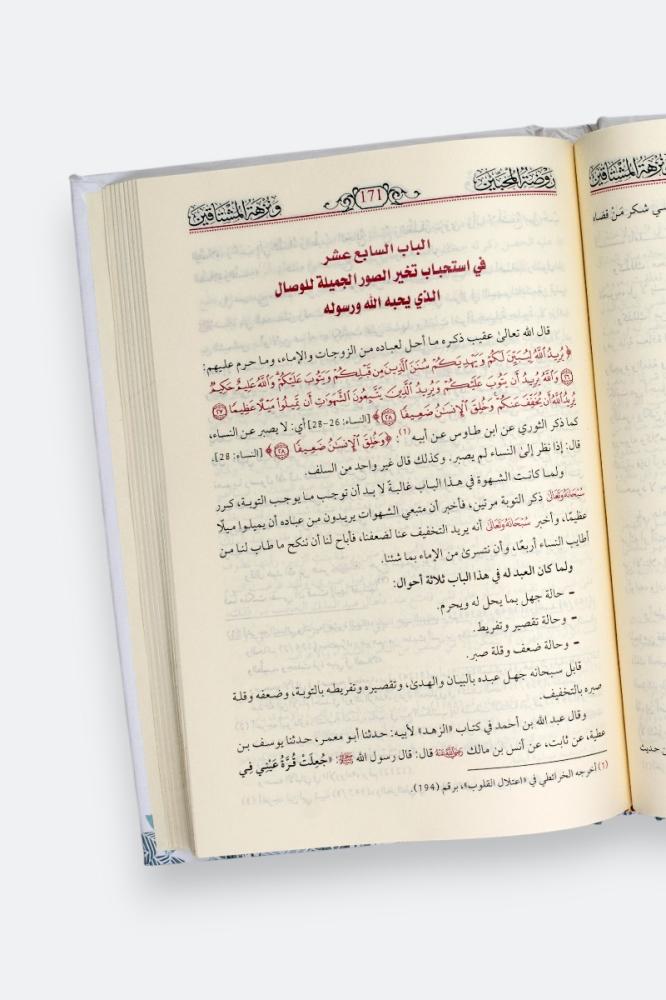 روضة المحبين 171 ونزهة المشتاقين
الباب السابع عشر
في استحباب تخير الصور الجميلة للوصال
الذي يحبه الله ورسوله
قال الله تعالى عقيب ذكره ما أحل لعباده من الزوجات والإماء، وما حرم عليهم:
﴿يُرِيدُ اللَّهُ لِيُبَيِّنَ لَكُمْ وَيَهْدِيَكُمْ سُنَنَ الَّذِينَ مِن قَبْلِكُمْ وَيَتُوبَ عَلَيْكُمْ وَاللَّهُ عَلِيمٌ حَكِيمٌ
٢٦ وَاللَّهُ يُرِيدُ أَن يَتُوبَ عَلَيْكُمْ وَيُرِيدُ الَّذِينَ يَتَّبِعُونَ الشَّهَوَاتِ أَن تَمِيلُوا مَيْلًا عَظِيمًا ٢٧
يُرِيدُ اللَّهُ أَن يُخَفِّفَ عَنكُمْ وَخُلِقَ الْإِنسَانُ ضَعِيفًا ٢٨﴾ [النساء: 26-28] أي: لا يصبر عن النساء،
كما ذكر الثوري عن ابن طاوس عن أبيه(١): ﴿وَخُلِقَ الْإِنسَانُ ضَعِيفًا ٢٨﴾ [النساء: 28].
قال: إذا نظر إلى النساء لم يصبر. وكذلك قال غير واحد من السلف.
ولما كانت الشهوة في هذا الباب غالبةً لا بد أن توجب ما يوجب التوبة، كرر
سبحانه وتعالى ذكر التوبة مرتين، فأخبر أن متبعي الشهوات يريدون من عباده أن يميلوا ميلًا
عظيمًا، وأخبر سبحانه وتعالى أنه يريد التخفيف عنا لضعفنا، فأباح لنا أن ننكح ما طاب لنا من
أطايب النساء أربعًا، وأن نتسرى من الإماء بما شئنا.
ولما كان العبد له في هذا الباب ثلاثة أحوال:
- حالة جهل بما يحل له ويحرم.
- وحالة تقصير وتفريط.
- وحالة ضعف وقلة صبر.
قابل سبحانه جهل عبده بالبيان والهدى، وتقصيره وتفريطه بالتوبة، وضعفه وقلة
صبره بالتخفيف.
وقال عبد الله بن أحمد في كتاب «الزهد» لأبيه: حدثنا أبو معمر، حدثنا يوسف بن
عطية، عن ثابت، عن أنس بن مالك رضي الله عنه قال: قال رسول الله ﷺ: «جُعِلَتْ قُرَّةُ عَيْنِي فِي
(١) أخرجه الخرائطي في «اعتلال القلوب»، برقم (194).
ونزهة المشتاقين
سي شكر مَنْ قضاه
ن حديث